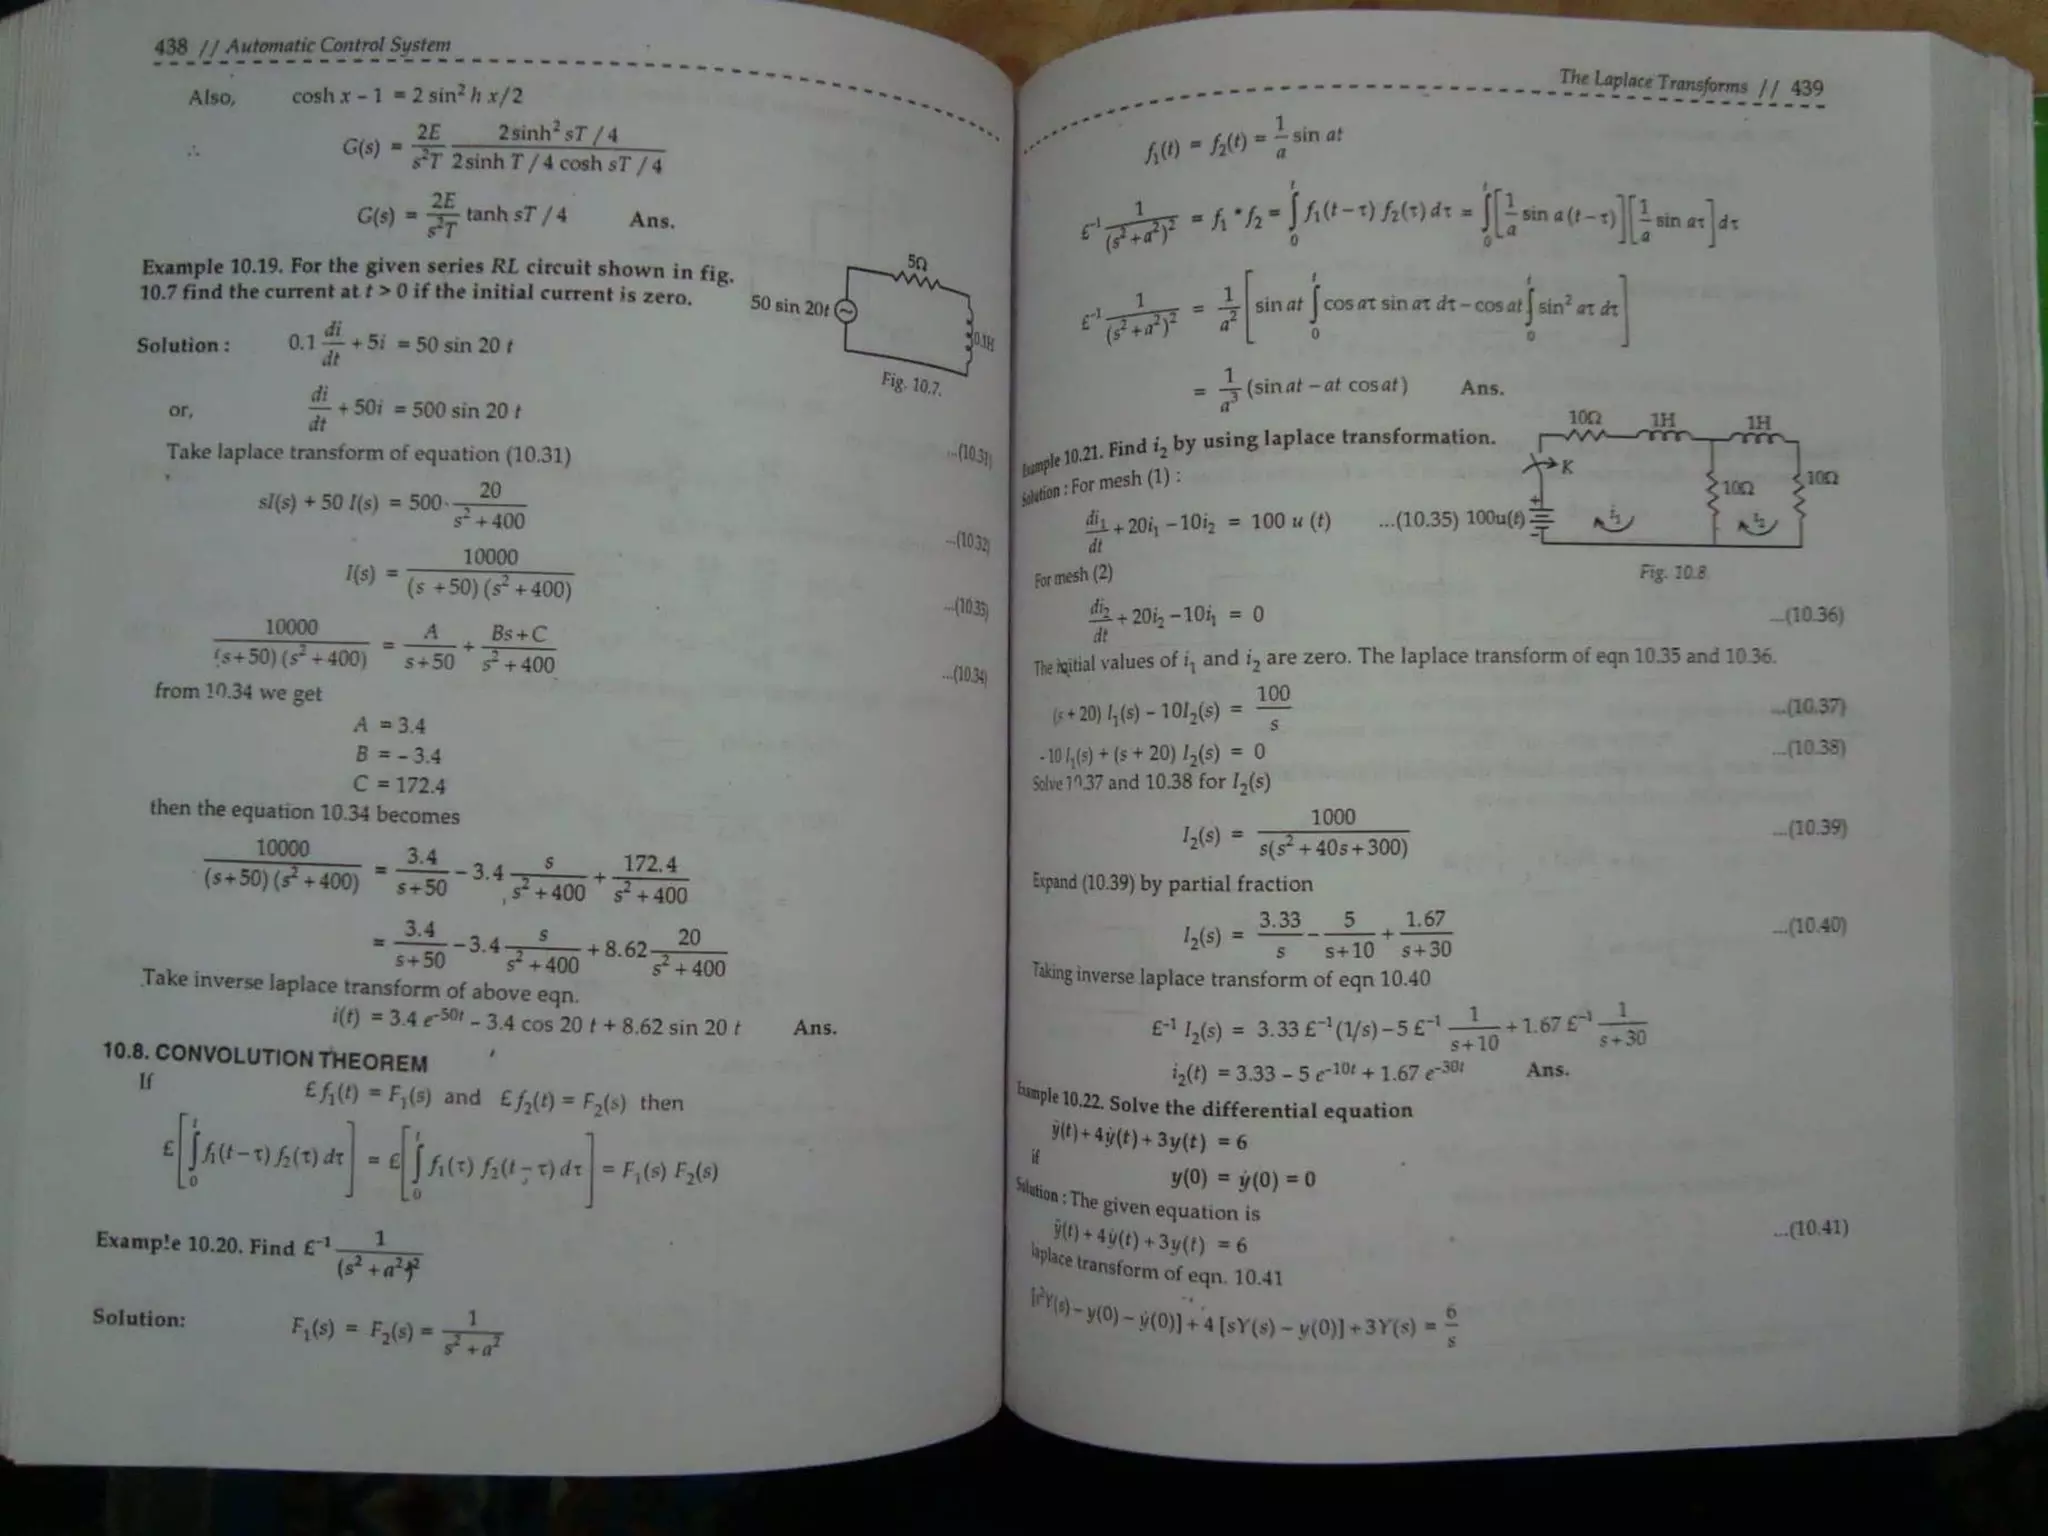 438 // Automatic Control System
Also, cosh x - 1 = 2 sin² h x/2
∴ G(s) = 2E/s²T 2sinh² sT / 4 / 2sinh T / 4 cosh sT / 4
G(s) = 2E/s²T tanh sT / 4 Ans.
Example 10.19. For the given series RL circuit shown in fig.
10.7 find the current at t > 0 if the initial current is zero.
5Ω
50 sin 20t
0.1H
Fig. 10.7.
Solution : 0.1 di/dt + 5i = 50 sin 20 t
or, di/dt + 50i = 500 sin 20 t ...(10.31)
Take laplace transform of equation (10.31)
sI(s) + 50 I(s) = 500· 20/s² + 400 ...(10.32)
I(s) = 10000/(s + 50) (s² + 400) ...(10.33)
10000/(s+50) (s² + 400) = A/s+50 + Bs+C/s² + 400 ...(10.34)
from 10.34 we get
A = 3.4
B = - 3.4
C = 172.4
then the equation 10.34 becomes
10000/(s+50) (s² + 400) = 3.4/s+50 - 3.4 s/s² + 400 + 172.4/s² + 400
= 3.4/s+50 - 3.4 s/s² + 400 + 8.62 20/s² + 400
Take inverse laplace transform of above eqn.
i(t) = 3.4 e⁻⁵⁰ᵗ - 3.4 cos 20 t + 8.62 sin 20 t Ans.
10.8. CONVOLUTION THEOREM
If £ f₁(t) = F₁(s) and £ f₂(t) = F₂(s) then
£[∫₀ᵗ f₁(t-τ) f₂(τ) dτ] = £[∫₀ᵗ f₁(τ) f₂(t-τ) dτ] = F₁(s) F₂(s)
Example 10.20. Find £⁻¹ 1/(s² + a²)²
Solution: F₁(s) = F₂(s) = 1/s² + a²
The Laplace Transforms // 439
f₁(t) = f₂(t) = 1/a sin at
£⁻¹ 1/(s²+a²)² = f₁ * f₂ = ∫₀ᵗ f₁(t-τ) f₂(τ) dτ = ∫₀ᵗ [1/a sin a(t-τ)][1/a sin aτ] dτ
£⁻¹ 1/(s²+a²)² = 1/a² [sin at ∫₀ᵗ cos aτ sin aτ dτ - cos at ∫₀ᵗ sin² aτ dτ]
= 1/a³ (sin at - at cos at) Ans.
Example 10.21. Find i₂ by using laplace transformation.
10Ω 1H 1H
K
10Ω 10Ω
100u(t)
i₁ i₂
Fig. 10.8
Solution : For mesh (1) :
di₁/dt + 20i₁ - 10i₂ = 100 u (t) ...(10.35)
For mesh (2)
di₂/dt + 20i₂ - 10i₁ = 0 ...(10.36)
The initial values of i₁ and i₂ are zero. The laplace transform of eqn 10.35 and 10.36.
(s + 20) I₁(s) - 10I₂(s) = 100/s ...(10.37)
-10 I₁(s) + (s + 20) I₂(s) = 0 ...(10.38)
Solve 10.37 and 10.38 for I₂(s)
I₂(s) = 1000/s(s² + 40s + 300) ...(10.39)
Expand (10.39) by partial fraction
I₂(s) = 3.33/s - 5/s+10 + 1.67/s+30 ...(10.40)
Taking inverse laplace transform of eqn 10.40
£⁻¹ I₂(s) = 3.33 £⁻¹ (1/s) - 5 £⁻¹ 1/s+10 + 1.67 £⁻¹ 1/s+30
i₂(t) = 3.33 - 5 e⁻¹⁰ᵗ + 1.67 e⁻³⁰ᵗ Ans.
Example 10.22. Solve the differential equation
ÿ(t) + 4ẏ(t) + 3y(t) = 6
if y(0) = ẏ(0) = 0
Solution : The given equation is
ÿ(t) + 4ẏ(t) + 3y(t) = 6 ...(10.41)
laplace transform of eqn. 10.41
[s²Y(s) - y(0) - ẏ(0)] + 4 [sY(s) - y(0)] + 3Y(s) = 6/s